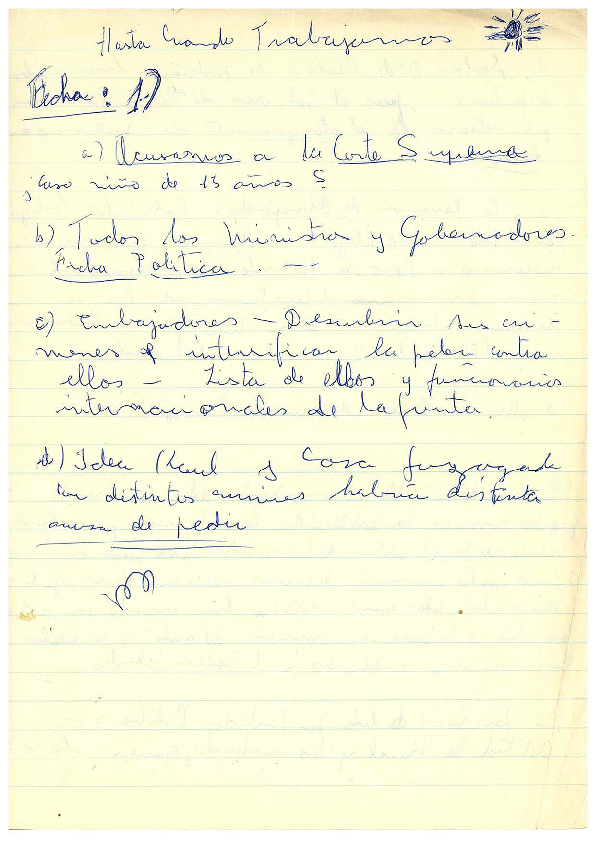 Hasta Cuando Trabajamos
Fecha : 1-)
a) Acusamos a la Corte Suprema
¿Caso niño de 13 años ?
b) Todos los Ministros y Gobernadores.
Ficha Política . —
c) Embajadores — Descubrir sus crí-
menes e intensificar la pelea contra
ellos — Lista de ellos y funcionarios
internacionales de la Junta.
d) Idea y Cosa juzgada
con distintos habría distinta
de pedir